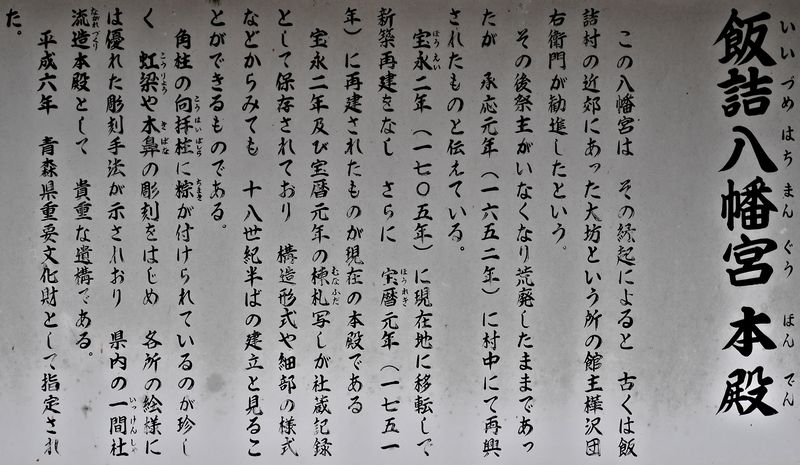 飯詰八幡宮 本殿
いいづめはちまんぐう ほんでん
この八幡宮は その縁起によると 古くは飯
詰村の近郊にあった大坊という所の館主樺沢団
右衛門が勧進したという。
その後祭主がいなくなり荒廃したままであっ
たが 承応元年（一六五二年）に村中にて再興
されたものと伝えている。
宝永二年（一七〇五年）に現在地に移転して
ほうえい
新築再建をなし さらに 宝暦元年（一七五一
ほうれき
年）に再建されたものが現在の本殿である
宝永二年及び宝暦元年の棟札写しが社蔵記録
むなふだ
として保存されており 構造形式や細部の様式
などからみても 十八世紀半ばの建立と見るこ
とができるものである。
角柱の向拝柱に粽が付けられているのが珍し
こうはいばしら ちまき
く 虹梁や木鼻の彫刻をはじめ 各所の絵様に
こうりょう きばな
は優れた彫刻手法が示されおり 県内の一間社
いっけんしゃ
流造本殿として 貴重な遺構である。
ながれづくり
平成六年 青森県重要文化財として指定され
た。